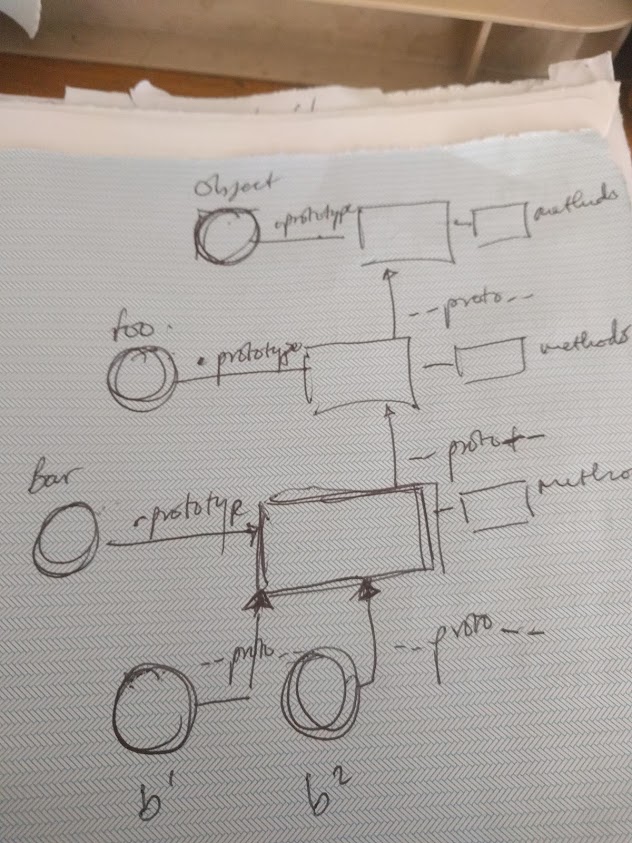 Object
.prototype
methods
--proto--
foo.
.prototype
methods
--proto--
Bar
.prototype
Metho
--proto--
--proto--
b1
b2